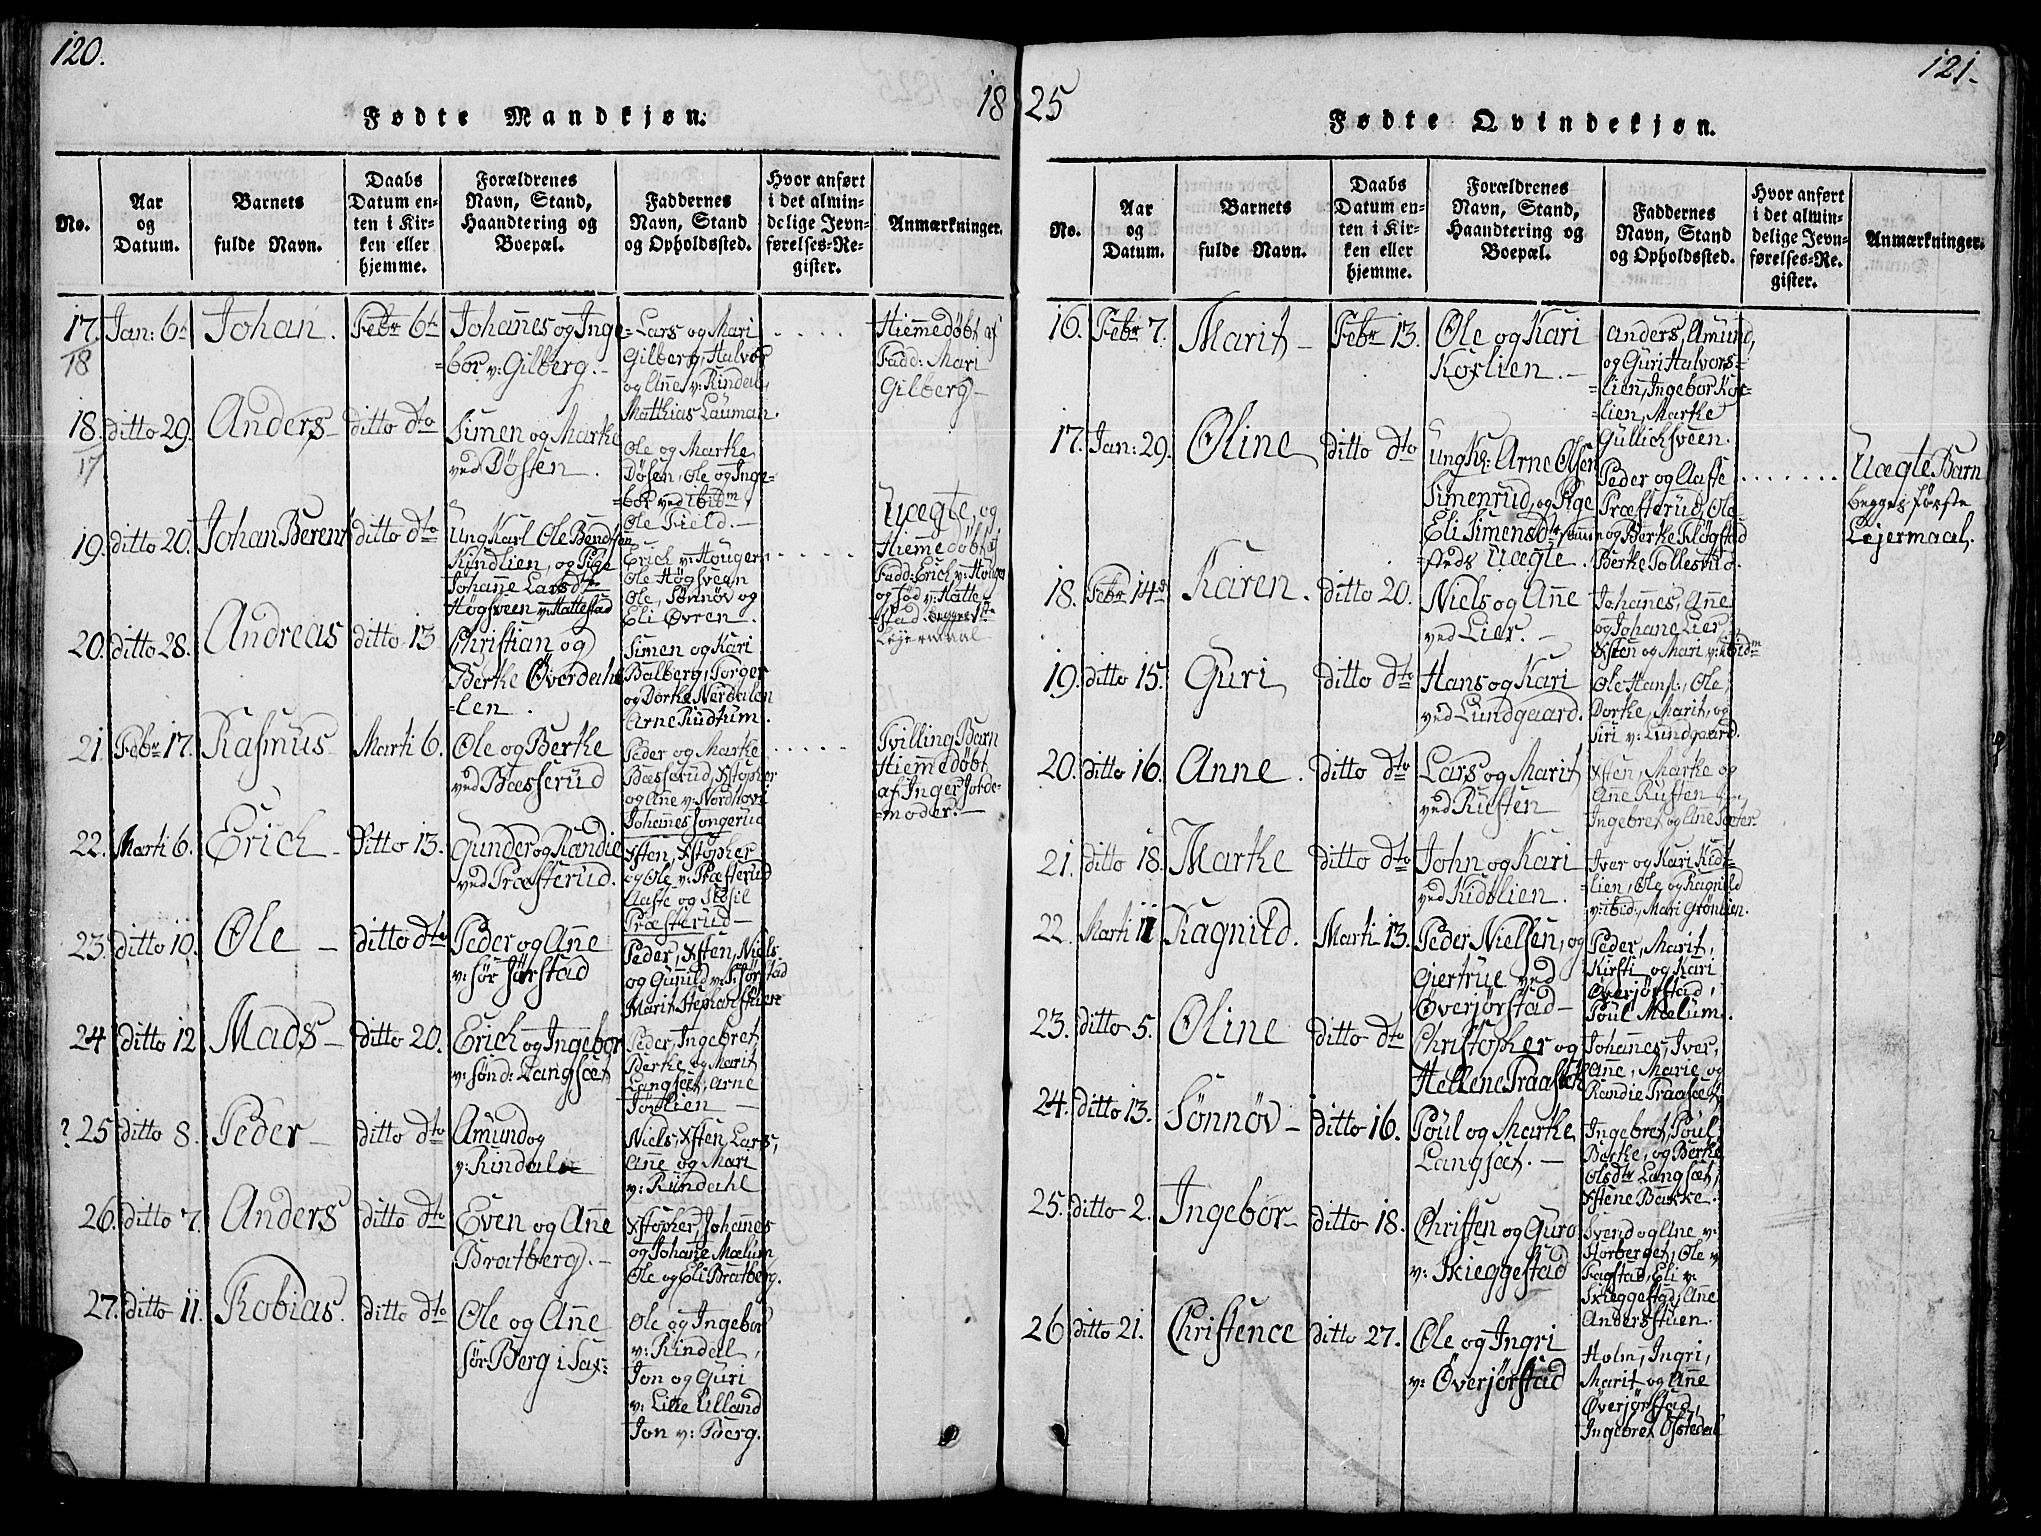 120.
18
Fødte Mandkjøn.
No.
Aar
og
Datum.
Barnets
fulde Navn.
Daabs
Datum en-
ten i Kir-
ken eller
hjemme.
Forældrenes
Navn, Stand,
Haandtering og
Boepæl.
Faddernes
Navn, Stand
og Opholdssted.
Hvor anført
i det almin-
delige Jevn-
førelses-Re-
gister.
Anmærkninger.
17.
18
Jan: 6te
Johan.
Febr 6te
Johañes og Inge
=bor v: Gilberg.
Lars og Mari
Gilberg, Halvor
og Añe v: Rindal,
Matthias Lauman.
Hiem̃edøbt af
Fadd: Mari
Gilberg
18.
17
ditto 29.
Anders
ditto dto
Simen og Marthe
ved Døsen
Ole og Marthe
Døsen, Ole og Inge-
=bor ved ibidm
Ole Field.
19.
ditto 20.
Johan Berent
ditto dto
Ung Karl Ole Bendsen
Kindlien, og Pige
Johañe Larsdtr
Høgsveen v: Hattestad
Erich v: Hougen
Ole Høgsveen
Ole, Sønnøv og
Eli Øvren.
Uægte, og
Hiem̃edøbt
Fadd: Erich v: Hougen
og fød v: Hatte
stad begges 1ste
Lejermaal
20.
ditto 28.
Andreas
ditto 13
Christian og
Berthe Øverdahl
=len.
Simen og Kari
Balberg, Torger
og Dorthe Nerdalen
Arne Rudtum.
21.
Febr 17.
Rasmus
Marti 6.
Ole og Berthe
ved Bæsserud
Peder og Marthe
Bæsserud, Xstopher
og Ane v: Nordhove
Johañes Jongerud
Tvilling Barn
Hiem̃edøbt
af Inger Jorde-
=moder.
22.
Marti 6.
Erich
Ditto 13.
Gunder og Randie
ved Præsterud.
Xsten, Xstopher
og Ole v: Præsterud
Aaste og Sidsil
Præsterud
23.
ditto 10.
Ole
ditto dto
Peder og Añe
v: sør Jørstad
Peder, Xsten, Niels
og Guñild v: S: Jørstad
Marit
24
ditto 12
Mads
ditto 20.
Erich og Ingebor
v: sønd: Langsæt
Peder, Ingebret,
Berthe og Marit
Langsæt, Arne
Jørlien
? 25
ditto 8.
Peder
ditto dto
Amund og
v: Rindal
Niels, Xsten, Lars,
Añe og Mari
v: Rindahl
26.
ditto 7.
Anders
ditto dto
Even og Añe
Bratberg.
Xstopher, Johañes
og Johañe Mælum
Ole og Eli Bratberg.
27.
ditto 11.
Tobias.
ditto dto
Ole og Añe
sør Berg i Sax:
Ole og Ingebor
v: Rindal,
Jon og Guri
v: Lille Ulland
Jon v: Berg.
25
121.
Fødte Qvindekjøn.
No.
Aar
og
Datum.
Barnets
fulde Navn.
Daabs
Datum en-
ten i Kir-
ken eller
hjemme.
Forældrenes
Navn, Stand,
Haandtering og
Boepæl.
Faddernes
Navn, Stand
og Opholdssted.
Hvor anført
i det almin-
delige Jevn-
førelses-Re-
gister.
Anmærkninger.
16.
Febr 7.
Marit
Febr 13.
Ole og Kari
Koslien.
Anders, Amund,
og Guri Halvors-
=lien, Ingebor Kos-
=lien, Marthe
Gullichsveen.
17.
Jan: 29.
Oline
ditto dto
Ung K: Arne Olsen
Simenrud, og Pige
Eli Simensdtr sam̃e
steds Uægte.
Peder og Aaste
Præsterud, Ole
og Berthe Fløgstad
Berthe Tollestad.
Uægte Barn
begges første
Lejermaal,
18.
Febr 14de
Karen.
ditto 20.
Niels og Añe
ved Lier.
Johañes, Añe
og Johañe Lier
Xsten og Mari v: ibidm
19.
ditto 15.
Guri
ditto dto
Hans og Kari
ved Lundgaard.
Ole Hans:, Ole,
Dorthe, Marit, og
Siri v: Lundgaard.
20.
ditto 16.
Anne.
ditto dto
Lars og Marit
ved Rusten
Xsten, Marthe og
Añe Rusten
Ingebret og Ane Sæter.
21.
ditto 18.
Marthe
ditto dto
John og Kari
ved Kidslien.
Iver og Kari Kids-
=lien, Ole og Ragnild
v: ibid:, Mari Grønlien.
22.
Marti 11
Ragnild.
Marti 13.
Peder Nielsen, og
Giertrue ved
Øverjørstad
Peder, Marit,
Kirsti og Kari
Øverjørstad,
Poul Mælum.
23.
ditto 5.
Oline
ditto dto
Christopher og
Hellene Traasæth
Johañes, Iver,
Ane, Marie og
Randie Traasæt.
24.
ditto 13.
Sønnøv
ditto 16.
Poul og Marthe
Langsæt.
Ingebret, Poul,
Berthe, og Berthe
Olsdtr Langsæt,
Xstene Bakke.
25.
ditto 2.
Ingebor
ditto 18.
Christen og Guro
v: Skieggestad
Svend og Ane v:
Storberget, Ole v:
Fagstad, Eli v:
Skieggestad, Ane
Andersstuen.
26
ditto 21.
Christence
ditto 27.
Ole og Ingri
v: Øverjørstad
Holm, Ingri,
Marit og Añe
Øverjørstad,
Ingebret Ofstedal